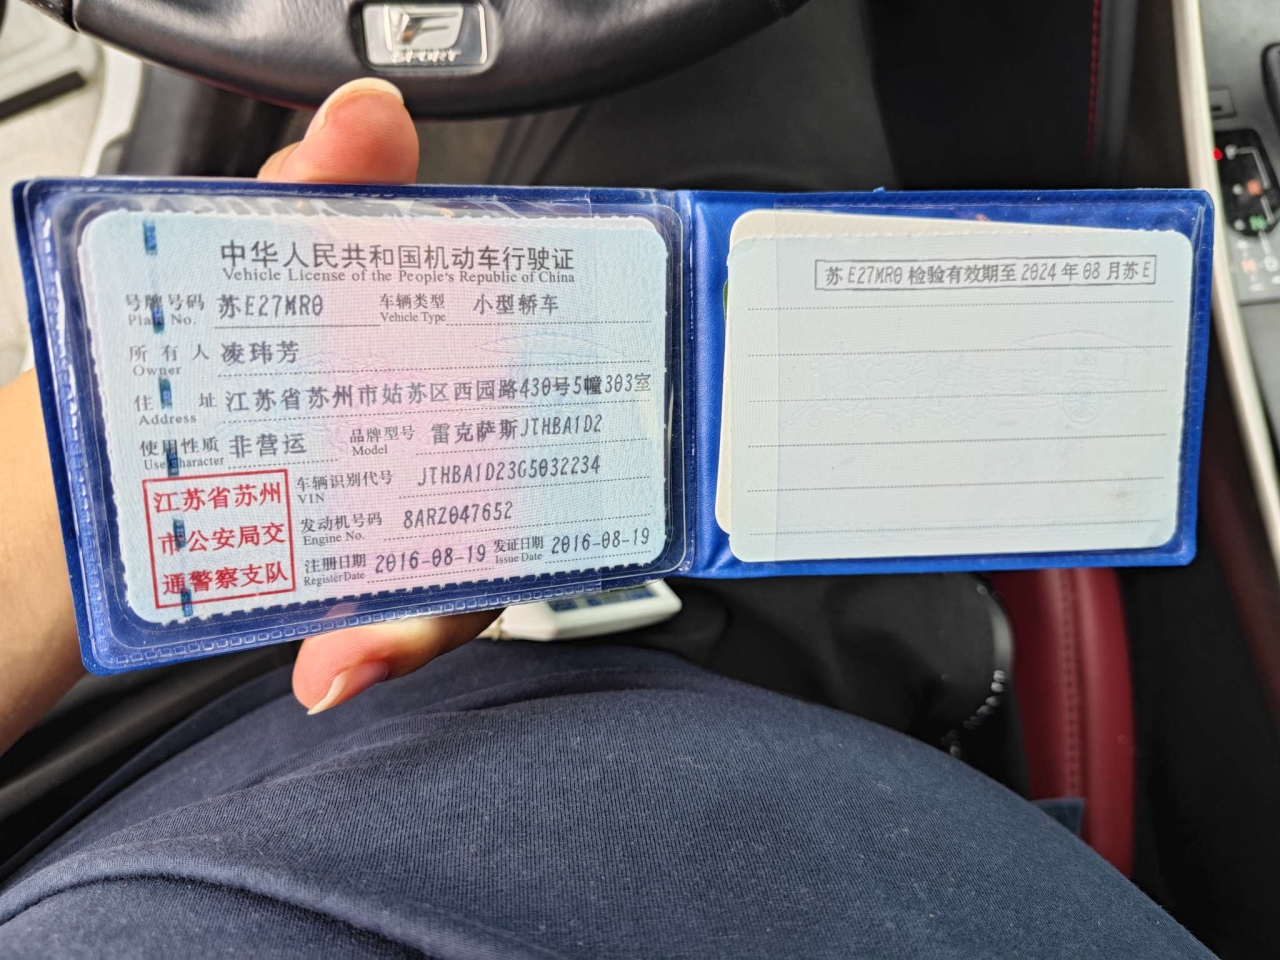 F SPORT
中华人民共和国机动车行驶证
Vehicle License of the People's Republic of China
号牌号码 苏E27MR0 车辆类型 小型轿车
Plate No. Vehicle Type
所有人 凌玮芳
Owner
住址 江苏省苏州市姑苏区西园路430号5幢303室
Address
使用性质 非营运 品牌型号 雷克萨斯JTHBA1D2
Use Character Model
车辆识别代号 JTHBA1D23G5032234
VIN
发动机号码 8ARZ047652
Engine No.
注册日期 2016-08-19 发证日期 2016-08-19
Register Date Issue Date
江苏省苏州
市公安局交
通警察支队
苏E27MR0检验有效期至2024年08月苏E